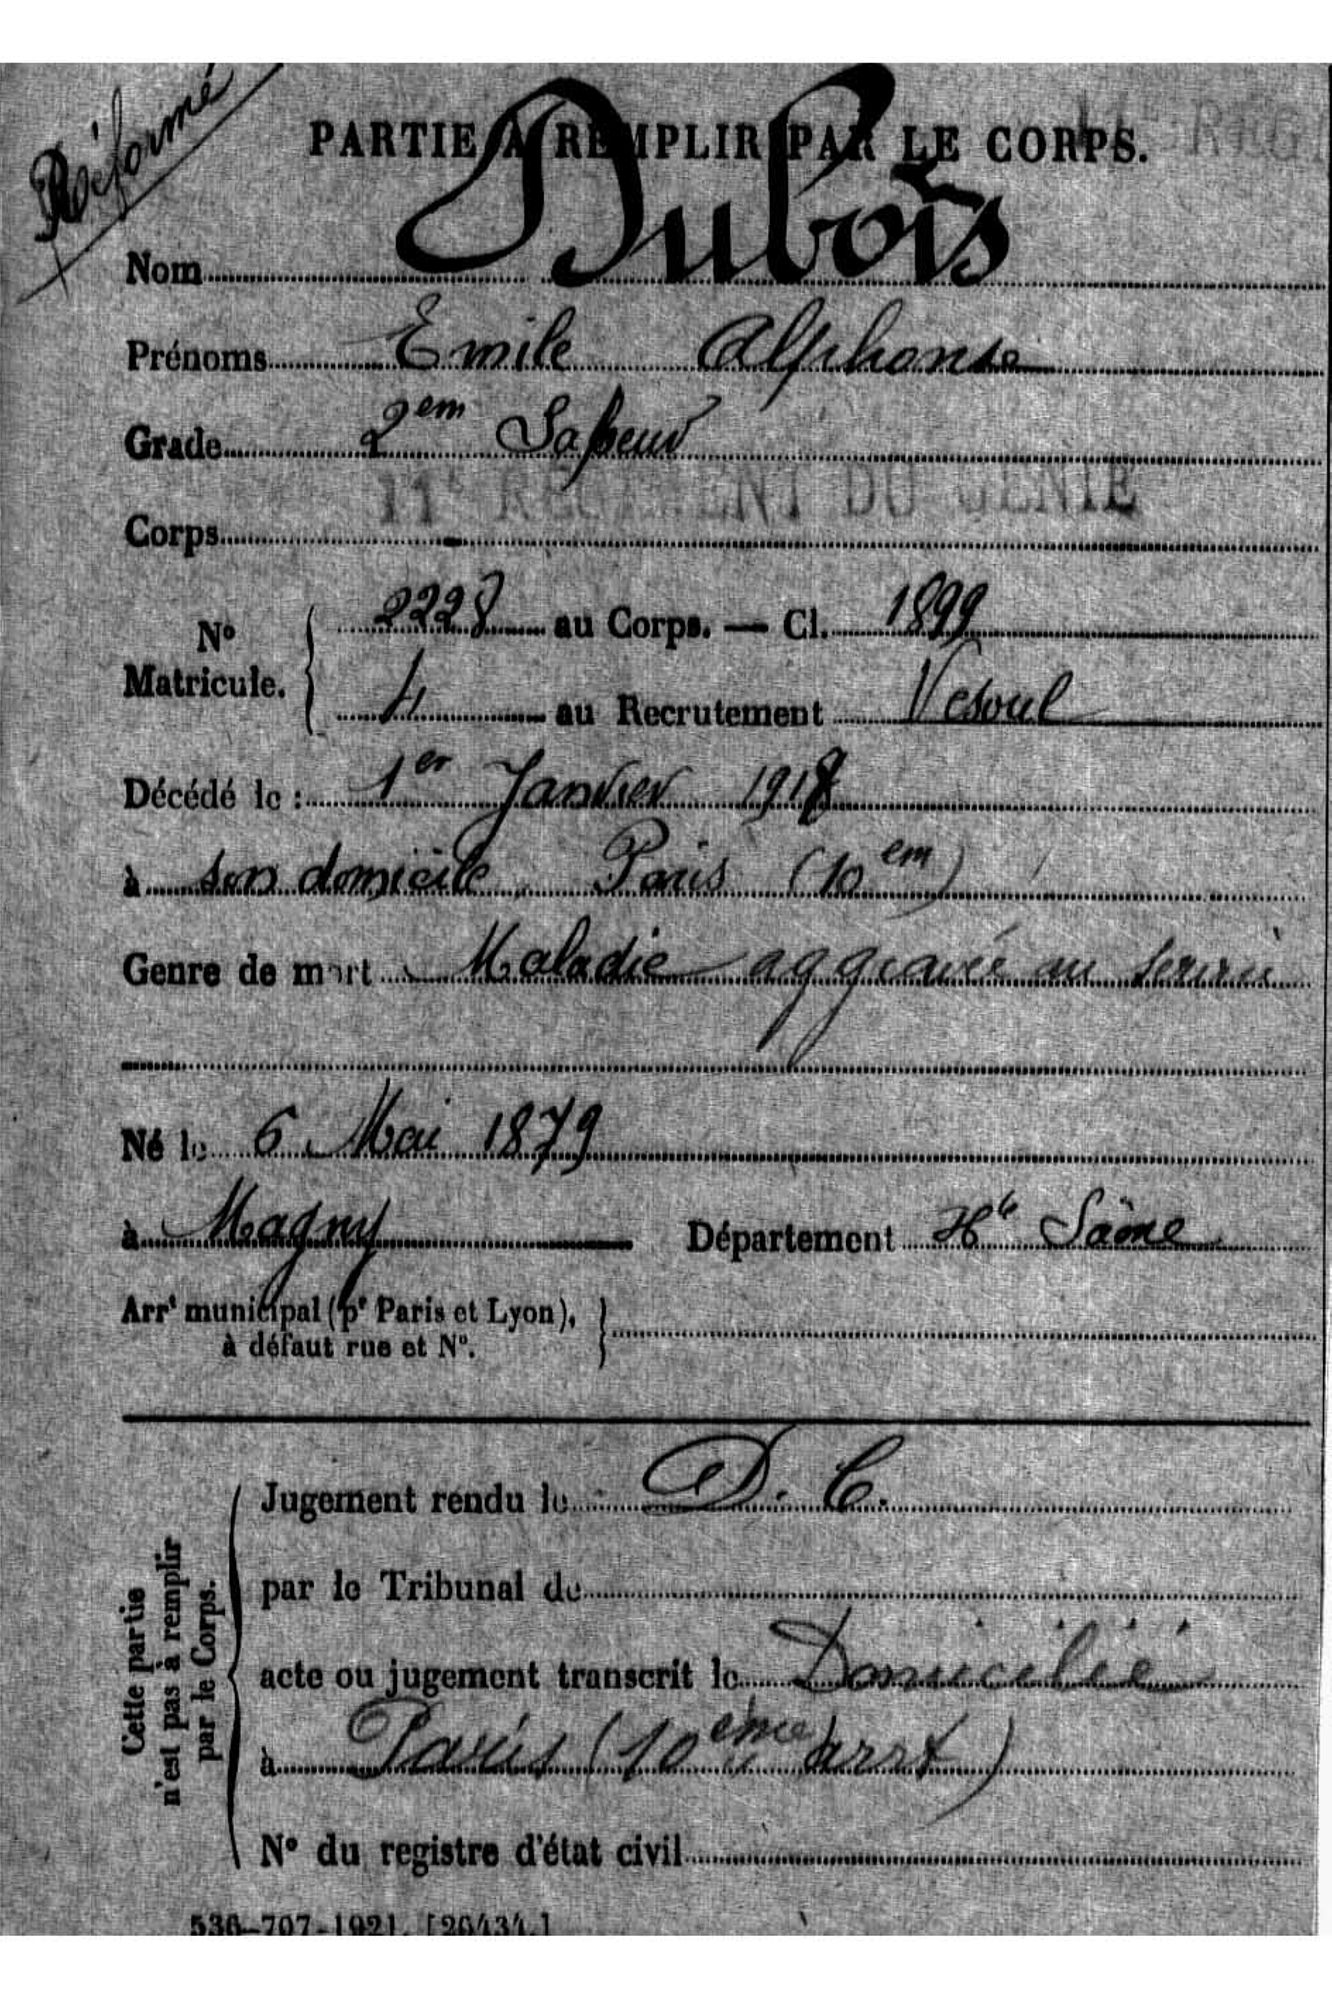 Réformé
PARTIE À REMPLIR PAR LE CORPS.
Nom Dubois
Prénoms Emile Alphonse
Grade 2em Sapeur
11e RÉGIMENT DU GÉNIE
Corps
No Matricule. 2228 au Corps. — Cl. 1899
4 au Recrutement Vesoul
Décédé le : 1er Janvier 1918
à son domicile Paris (10em)
Genre de mort Maladie aggravée au service
Né le 6 Mai 1879
à Magny Département Hte Saône
Arrt municipal (pr Paris et Lyon),
à défaut rue et No.
Cette partie
n'est pas à remplir
par le Corps.
Jugement rendu le D. C.
par le Tribunal de
acte ou jugement transcrit le Domicilié
à Paris (10ème arrt)
No du registre d'état civil
536-707-1921. [26434.]